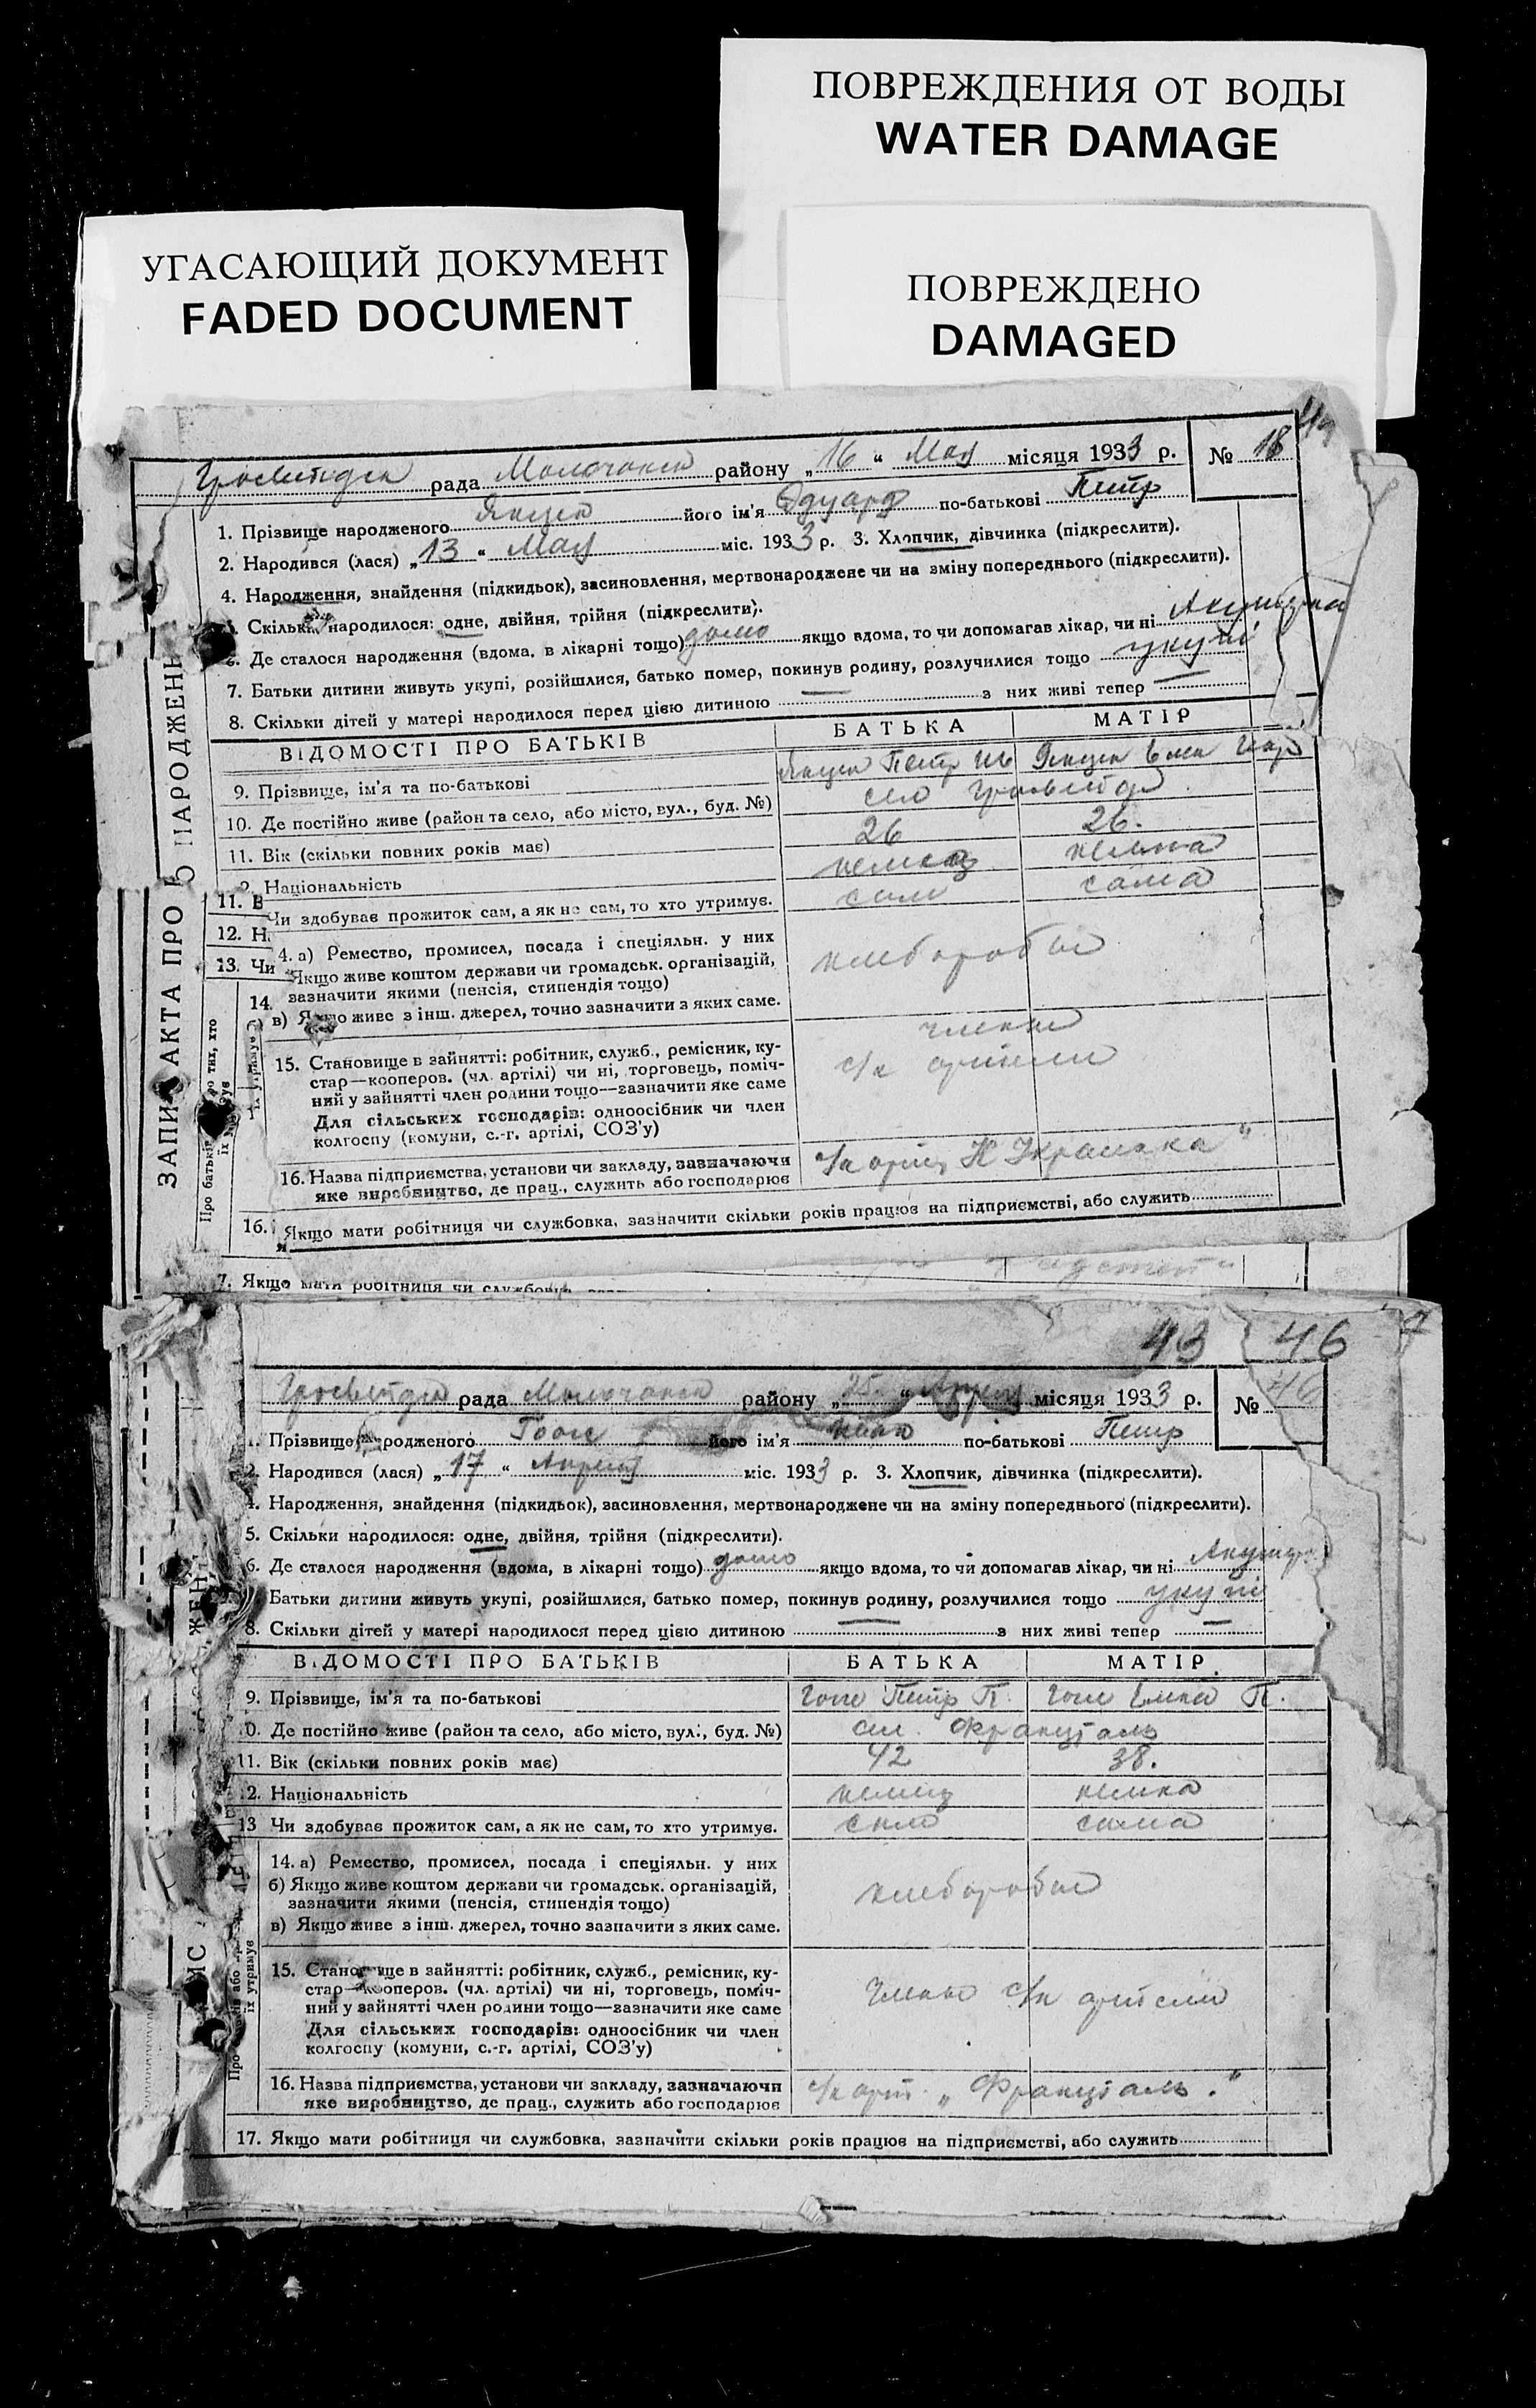 ПОВРЕЖДЕНИЯ ОТ ВОДЫ
WATER DAMAGE
УГАСАЮЩИЙ ДОКУМЕНТ
FADED DOCUMENT
ПОВРЕЖДЕНО
DAMAGED
рада Молочанск району „16“ Мая місяця 1933 р. № 18
1. Прізвище народженого Янцен його ім'я Эдуард по-батькові Петр
2. Народився (лася) „13“ Мая міс. 1933 р. 3. Хлопчик, дівчинка (підкреслити).
4. Народження, знайдення (підкидьок), засиновлення, мертвонароджене чи на зміну попереднього (підкреслити).
Скільки народилося: одне, двійня, трійня (підкреслити).
6. Де сталося народження (вдома, в лікарні тощо) дома якщо вдома, то чи допомагав лікар, чи ні Акушерка
7. Батьки дитини живуть укупі, розійшлися, батько помер, покинув родину, розлучилися тощо укупі
8. Скільки дітей у матері народилося перед цією дитиною — з них живі тепер —
ВІДОМОСТІ ПРО БАТЬКІВ БАТЬКА МАТІР
9. Прізвище, ім'я та по-батькові Янцен Петр Ив Янцен
10. Де постійно живе (район та село, або місто, вул., буд. №) село
11. Вік (скільки повних років має) 26 26.
2. Національність немец немка
11. В
Чи здобуває прожиток сам, а як не сам, то хто утримує. сам сама
12. Н
13. Чи
4. а) Ремество, промисел, посада і спеціяльн. у них
Якщо живе коштом держави чи громадськ. організацій,
зазначити якими (пенсія, стипендія тощо) хлеборобы
14.
в) Якщо живе з інш. джерел, точно зазначити з яких саме.
15. Становище в зайнятті: робітник, служб., ремісник, ку-
стар—кооперов. (чл. артілі) чи ні, торговець, поміч-
ний у зайнятті член родини тощо—зазначити яке саме
Для сільських господарів: одноосібник чи член
колгоспу (комуни, с.-г. артілі, СОЗ'у)
члены
с/х артели
16. Назва підприємства, установи чи закладу, зазначаючи
яке виробництво, де прац., служить або господарює
16.
Якщо мати робітниця чи службовка, зазначити скільки років працює на підприємстві, або служить
ЗАПИС АКТА ПРО НАРОДЖЕН
7. Якщо мати робітниця чи службовка
43 46
рада Молочанск району „25“ Апреля місяця 1933 р. № 46
Прізвище народженого його ім'я по-батькові Петр
2. Народився (лася) „17“ Апреля міс. 1933 р. 3. Хлопчик, дівчинка (підкреслити).
4. Народження, знайдення (підкидьок), засиновлення, мертвонароджене чи на зміну попереднього (підкреслити).
5. Скільки народилося: одне, двійня, трійня (підкреслити).
6. Де сталося народження (вдома, в лікарні тощо) дома якщо вдома, то чи допомагав лікар, чи ні
Батьки дитини живуть укупі, розійшлися, батько помер, покинув родину, розлучилися тощо укупі
8. Скільки дітей у матері народилося перед цією дитиною — з них живі тепер —
ВІДОМОСТІ ПРО БАТЬКІВ БАТЬКА МАТІР
9. Прізвище, ім'я та по-батькові Петр П. П.
0. Де постійно живе (район та село, або місто, вул., буд. №) Францталь
11. Вік (скільки повних років має) 42 38.
12. Національність немец немка
13 Чи здобуває прожиток сам, а як не сам, то хто утримує. сам сама
14. а) Ремество, промисел, посада і спеціяльн. у них
б) Якщо живе коштом держави чи громадськ. організацій,
зазначити якими (пенсія, стипендія тощо) хлеборобы
в) Якщо живе з інш. джерел, точно зазначити з яких саме.
15. Становище в зайнятті: робітник, служб., ремісник, ку-
стар—кооперов. (чл. артілі) чи ні, торговець, поміч-
ний у зайнятті член родини тощо—зазначити яке саме
Для сільських господарів: одноосібник чи член
колгоспу (комуни, с.-г. артілі, СОЗ'у)
члены с/х артели
16. Назва підприємства, установи чи закладу, зазначаючи
яке виробництво, де прац., служить або господарює
с/х арт. „Францталь."
17. Якщо мати робітниця чи службовка, зазначити скільки років працює на підприємстві, або служить